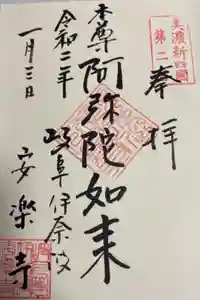 美濃新四國
第二
奉拝
本尊阿弥陀如来
岐阜伊奈波
安楽寺
令和二年
一月三日